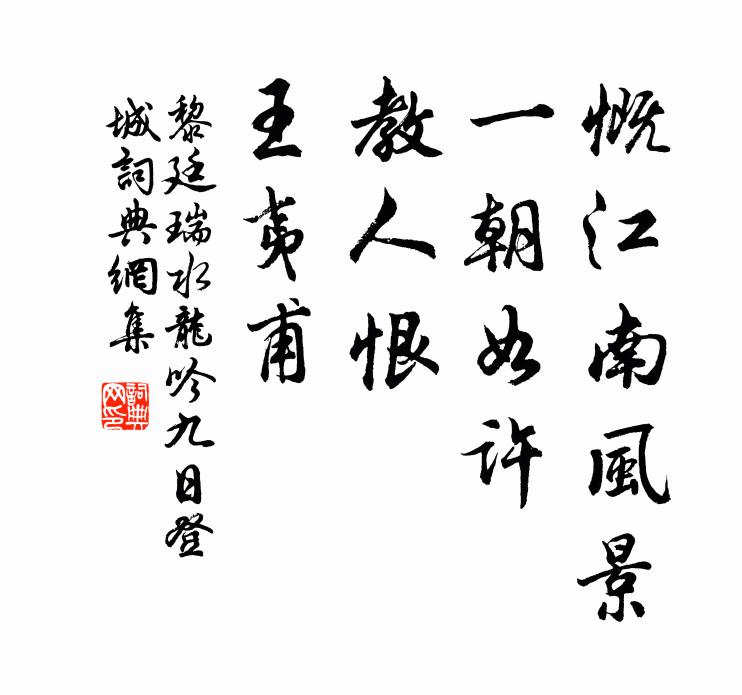 慨江南風景
一朝如許
教人恨
王夷甫
黎廷瑞水龍吟九日登
城詞典網集
詞典
网印